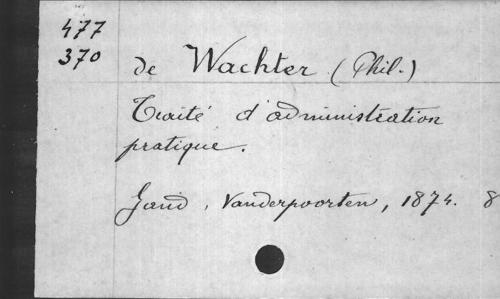 477
370
de Wachter (Phil.)
Traité d'administration
pratique.
Gand, Vanderpoorten, 1874. 8